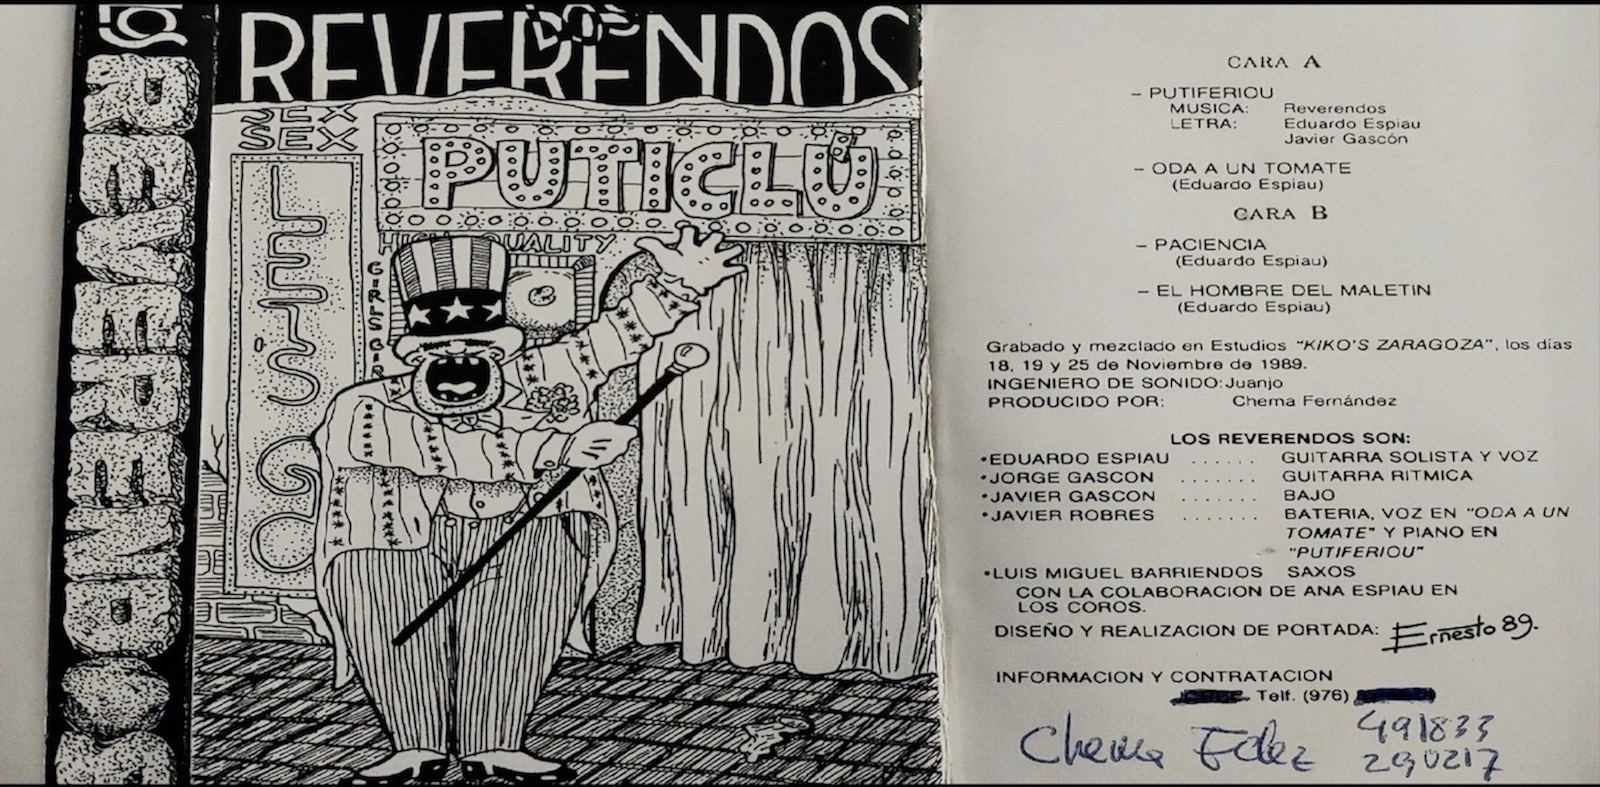 REVERENDOS
DOS
REVERENDOS
SEX
SEX
LET'S GO
PUTICLÚ
HIGH QUALITY
GIRLS GIR
CARA A
- PUTIFERIOU
MUSICA: Reverendos
LETRA: Eduardo Espiau
Javier Gascón
- ODA A UN TOMATE
(Eduardo Espiau)
CARA B
- PACIENCIA
(Eduardo Espiau)
- EL HOMBRE DEL MALETIN
(Eduardo Espiau)
Grabado y mezclado en Estudios "KIKO'S ZARAGOZA", los días
18, 19 y 25 de Noviembre de 1989.
INGENIERO DE SONIDO: Juanjo
PRODUCIDO POR: Chema Fernández
LOS REVERENDOS SON:
•EDUARDO ESPIAU ...... GUITARRA SOLISTA Y VOZ
•JORGE GASCON ....... GUITARRA RITMICA
•JAVIER GASCON ....... BAJO
•JAVIER ROBRES ....... BATERIA, VOZ EN "ODA A UN
TOMATE" Y PIANO EN
"PUTIFERIOU"
•LUIS MIGUEL BARRIENDOS SAXOS
CON LA COLABORACION DE ANA ESPIAU EN
LOS COROS.
DISEÑO Y REALIZACION DE PORTADA: Ernesto 89.
INFORMACION Y CONTRATACION
Telf. (976)
Chema Fdez 491833
290217